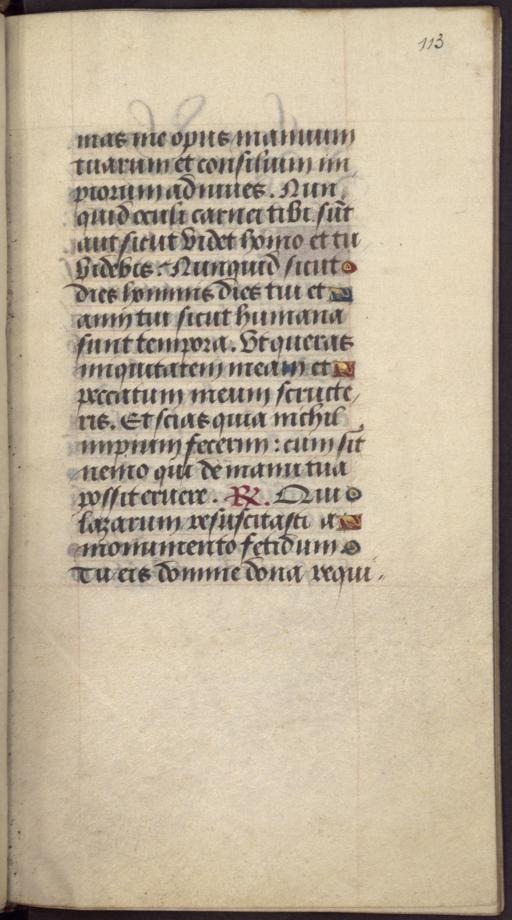 113
mas me opus manuum
tuarum et consilium im
piorum adiuues. Nun
quid oculi carnei tibi sūt
aut sicut videt homo et tu
videbis. Nunquid sicut
dies hominis dies tui et
anni tui sicut humana
sunt tempora. Ut queras
iniquitatem meam et
peccatum meum scrute/
ris. Et scias quia nichil
impium fecerim : cum sit
nemo qui de manu tua
possit eruere. R. Qui
lazarum resuscitasti a
monumento fetidum
Tu eis domine dona requi